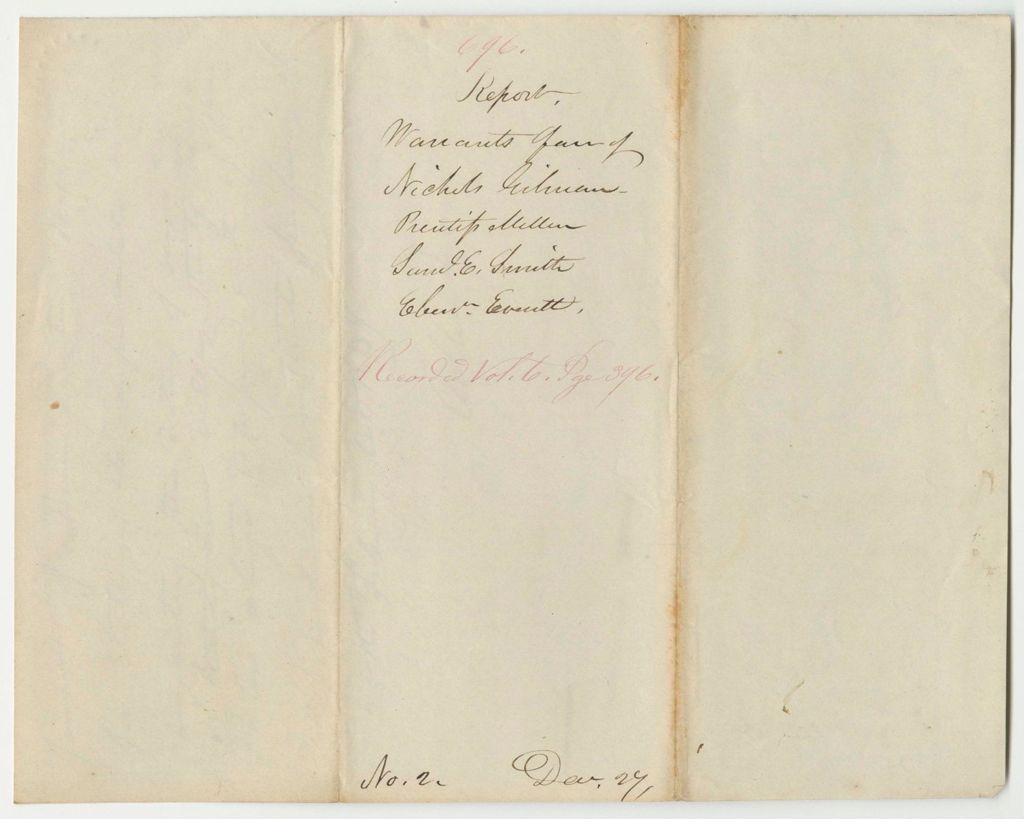 696.
Report,
Warrants fav of
Nichols Gilman
Prentiss Mellen
Saml. E. Smith
Ebenr. Everett,
Recorded Vol. 6. Pge 396.
No. 2. Dec. 27,